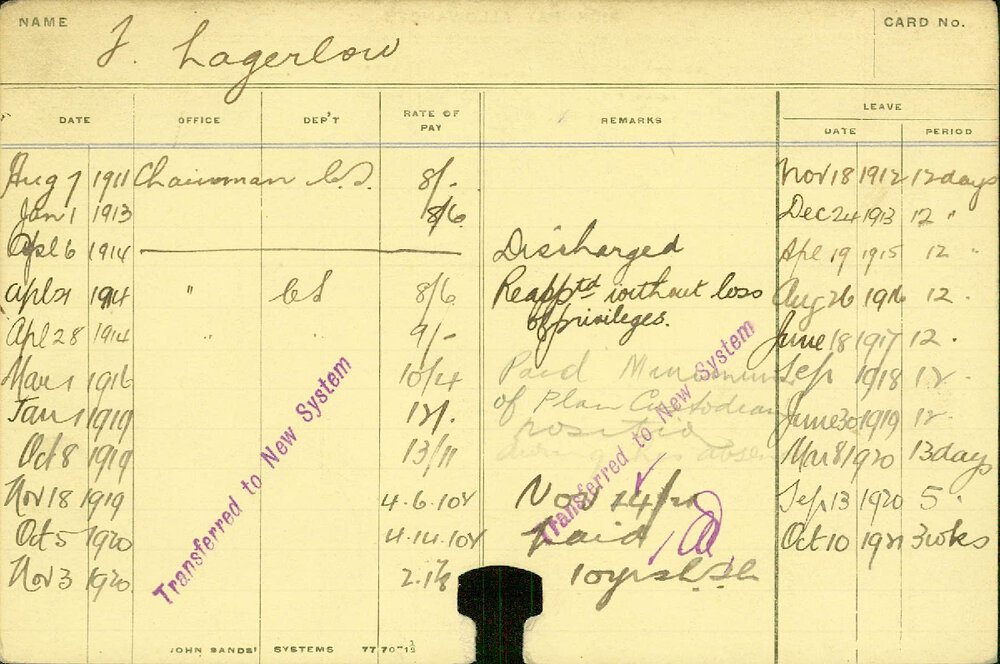 NAME
F. Lagerlow
CARD No.
DATE OFFICE DEP'T RATE OF PAY REMARKS LEAVE
DATE PERIOD
Aug 7 1911 Chainman C.S. 8/- Nov 18 1912 12 days
Jan 1 1913 8/6 Dec 24 1913 12 "
Apl 6 1914 Discharged Apl 19 1915 12 "
Apl 21 1914 " CS 8/6 Reapptd without loss Aug 26 1916 12 "
of privileges.
Apl 28 1914 " " 9/- June 18 1917 12 "
Mar 1 1916 10/4 Paid Minimum Sep 1918 12 "
Jan 1 1919 12/- of Plan Custodian June 30 1919 12 "
position
Oct 8 1919 13/11 during his absen Mar 8 1920 13 days
Nov 18 1919 4.6.10½ Nov 24/21 Sep 13 1920 5 "
Oct 5 1920 4.14.10½ Paid Oct 10 1921 3 wks
Nov 3 1920 10 yrs
Transferred to New System
Transferred to New System
JOHN SANDS' SYSTEMS 7770